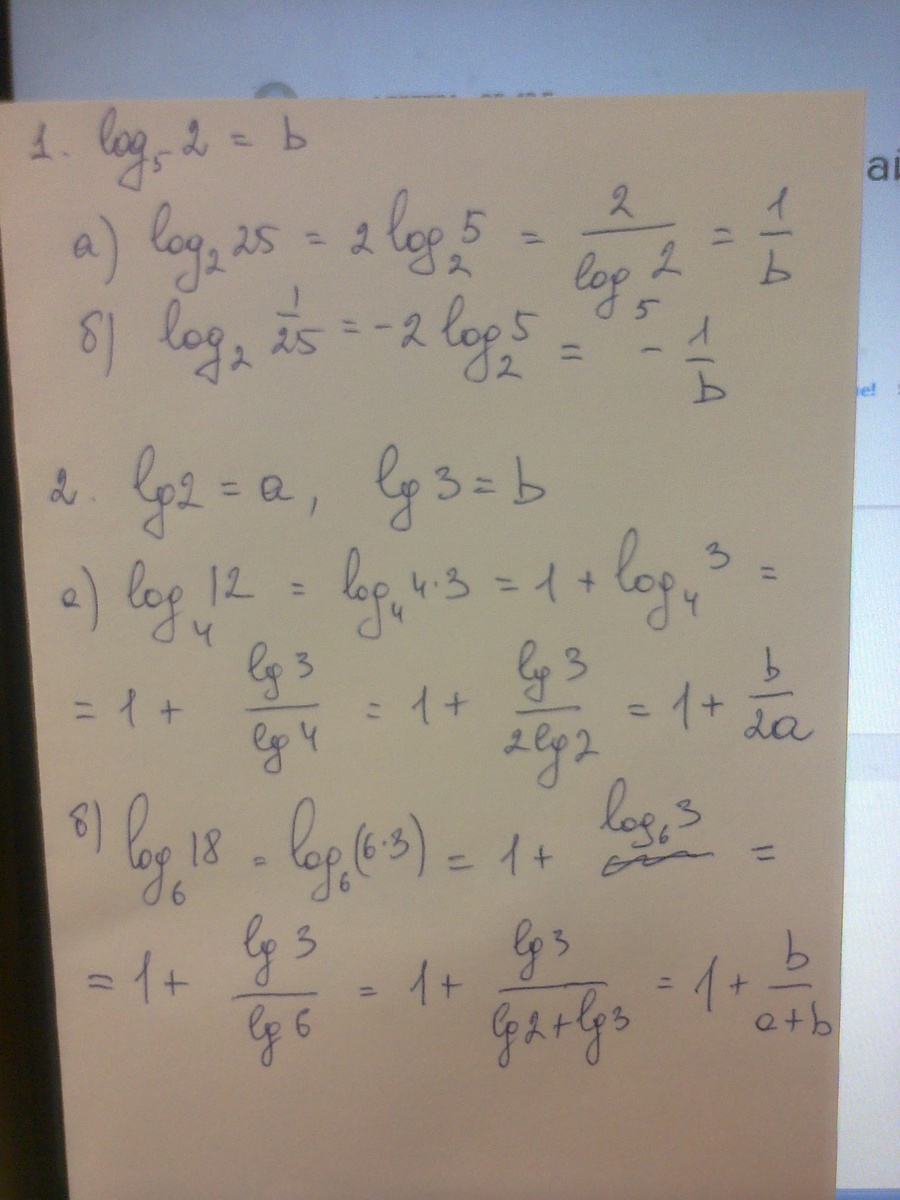 1. log₅ 2 = b
а) log₂ 25 = 2 log₂ 5 = 2/(log₅ 2) = 1/b
б) log₂ 1/25 = -2 log₂ 5 = - 1/b
2. lg 2 = a, lg 3 = b
а) log₄ 12 = log₄ 4·3 = 1 + log₄ 3 =
= 1 + lg 3/lg 4 = 1 + lg 3/(2 lg 2) = 1 + b/2a
б) log₆ 18 = log₆ (6·3) = 1 + log₆ 3 =
= 1 + lg 3/lg 6 = 1 + lg 3/(lg 2 + lg 3) = 1 + b/(a+b)